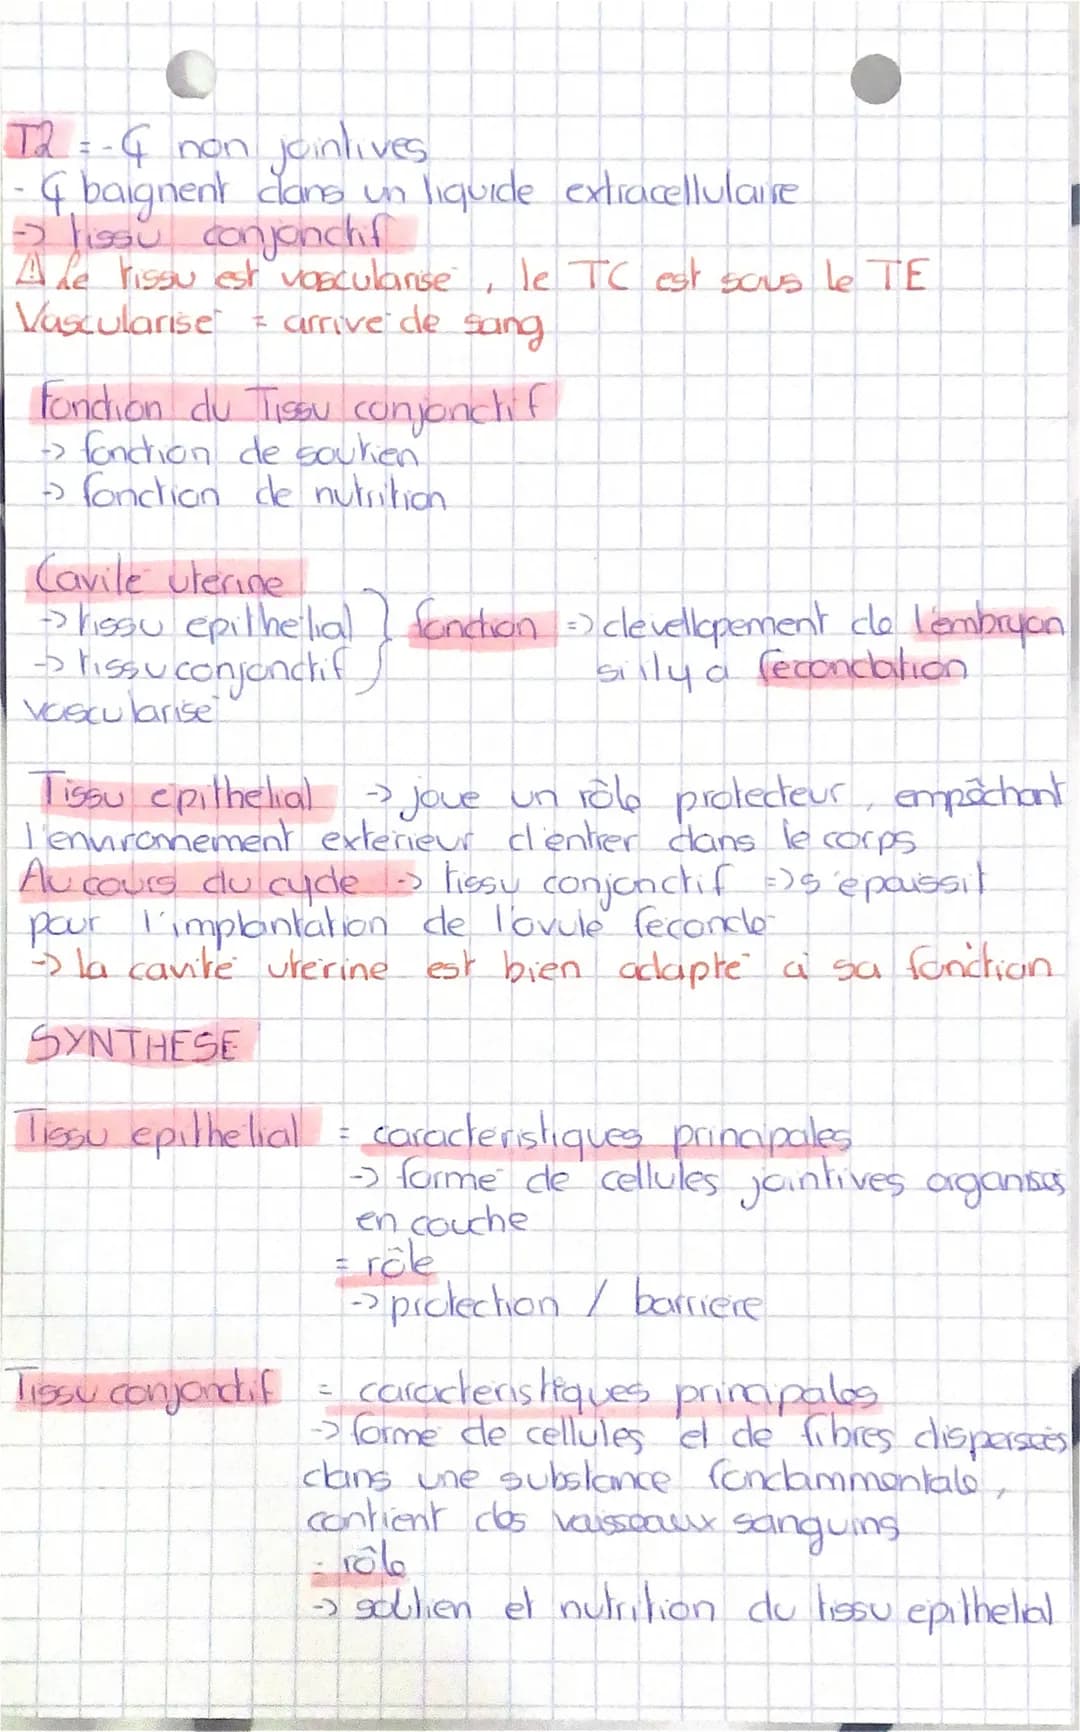 T2 = - ₵ non jointives
- ₵ baignent dans un liquide extracellulaire
-> tissu conjonctif
⚠ Le tissu est vascularisé, le TC est sous le TE
Vascularisé = arrivé de sang
Fonction du Tissu conjonctif
-> fonction de soutien
-> fonction de nutrition
Cavité utérine
-> tissu épithélial } fonction => dévellopement de l'embryon
-> tissu conjonctif } si ily a fécondation
vascularisé
Tissu épithélial -> joue un rôle protecteur, empêchant
l'environnement extérieur d'entrer dans le corps
Au cours du cycle -> tissu conjonctif => s'épaissit
pour l'implantation de l'ovule fécondé
-> la cavité utérine est bien adapté à sa fonction
SYNTHESE
Tissu épithélial = caractéristiques principales
-> formé de cellules jointives organisés
en couche
= rôle
-> protection / barrière
Tissu conjonctif = caractéristiques principales
-> formé de cellules et de fibres dispersées
dans une substance fondammentale,
contient des vaisseaux sanguins
= rôle
-> soutien et nutrition du tissu épithélial